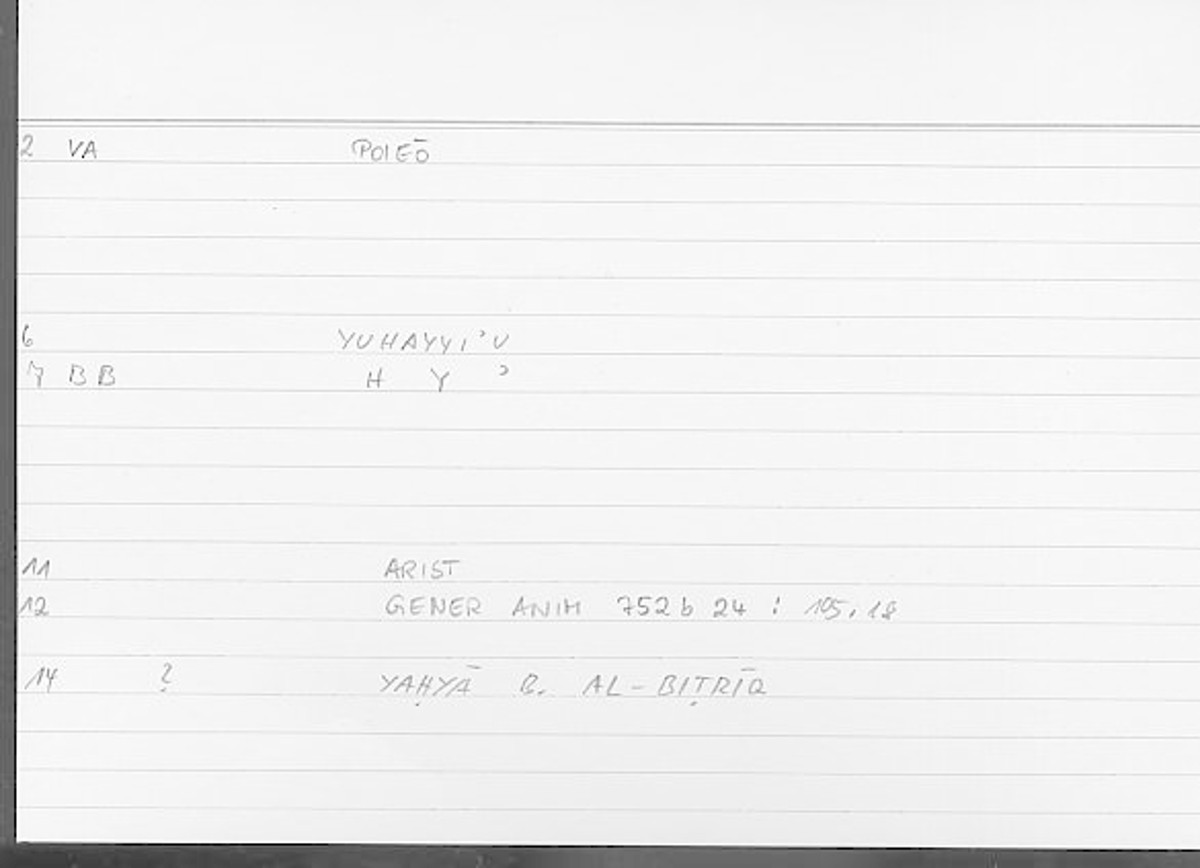 2 VA POIEŌ
6 YUHAYYIʾU
7 BB H Y ʾ
11 ARIST
12 GENER ANIM 752 b 24 : 105,18
14 ? YAḤYĀ B. AL-BIṬRĪQ